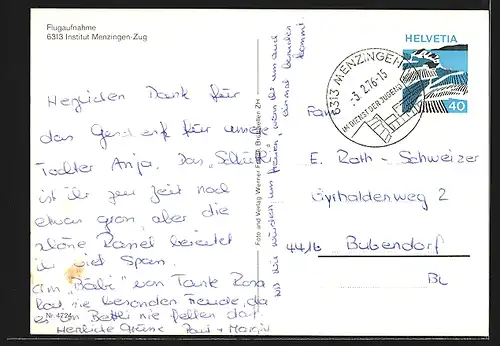 Flugaufnahme
6313 Institut Menzingen-Zug
Herzlichen Dank für
das Geschenk für unsere
Tochter Anja. Das
ist ihr zur Zeit noch
etwas gross, aber die
schöne Rassel bereitet
ihr viel Spass.
Am "Bäbi" von Tante Rosa
hat sie besonders Freude, da
es im Bettli nie fehlen darf
Herzliche Grüsse Paul + Maria
Nr. 4724
Wir würden uns freuen, wenn ihr uns auch
einmal besuchen
kommt.
Foto und Verlag Werner Brüttisellen ZH
HELVETIA
40
6313 MENZINGEN
-3.2.76-15
IM DIENST DER JUGEND
Fam.
E. Roth-Schweizer
Gyrhaldenweg 2
4416 Bubendorf
BL